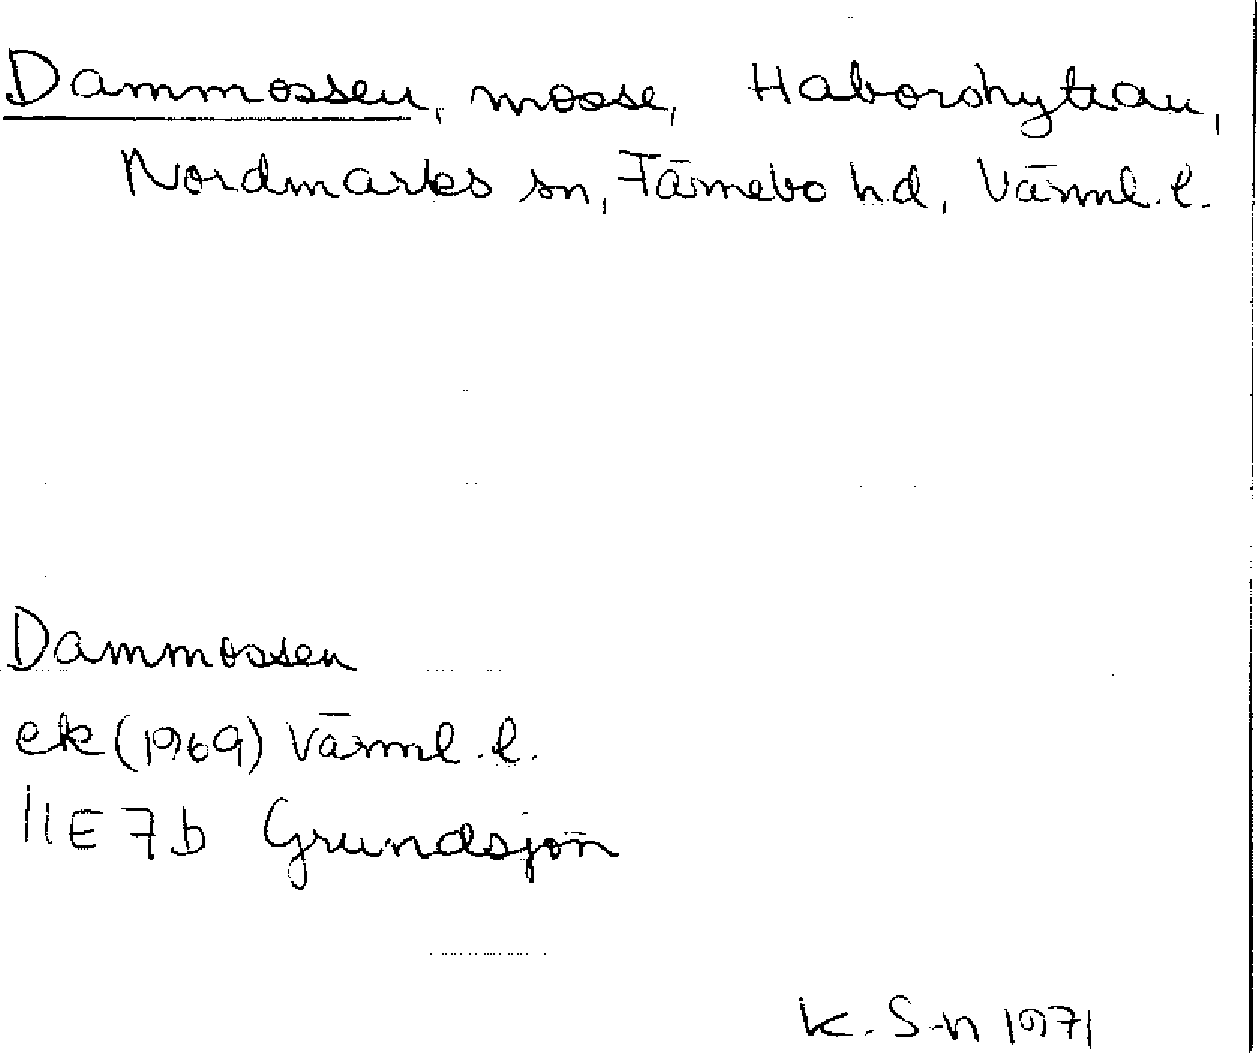 Dammossen, mosse, Haborshyttan,
Nordmarks sn, Färnebo hd, Värml. l.
Dammossen
ek (1969) Värml. l.
11E 7b Grundsjön
K. S-n 1971